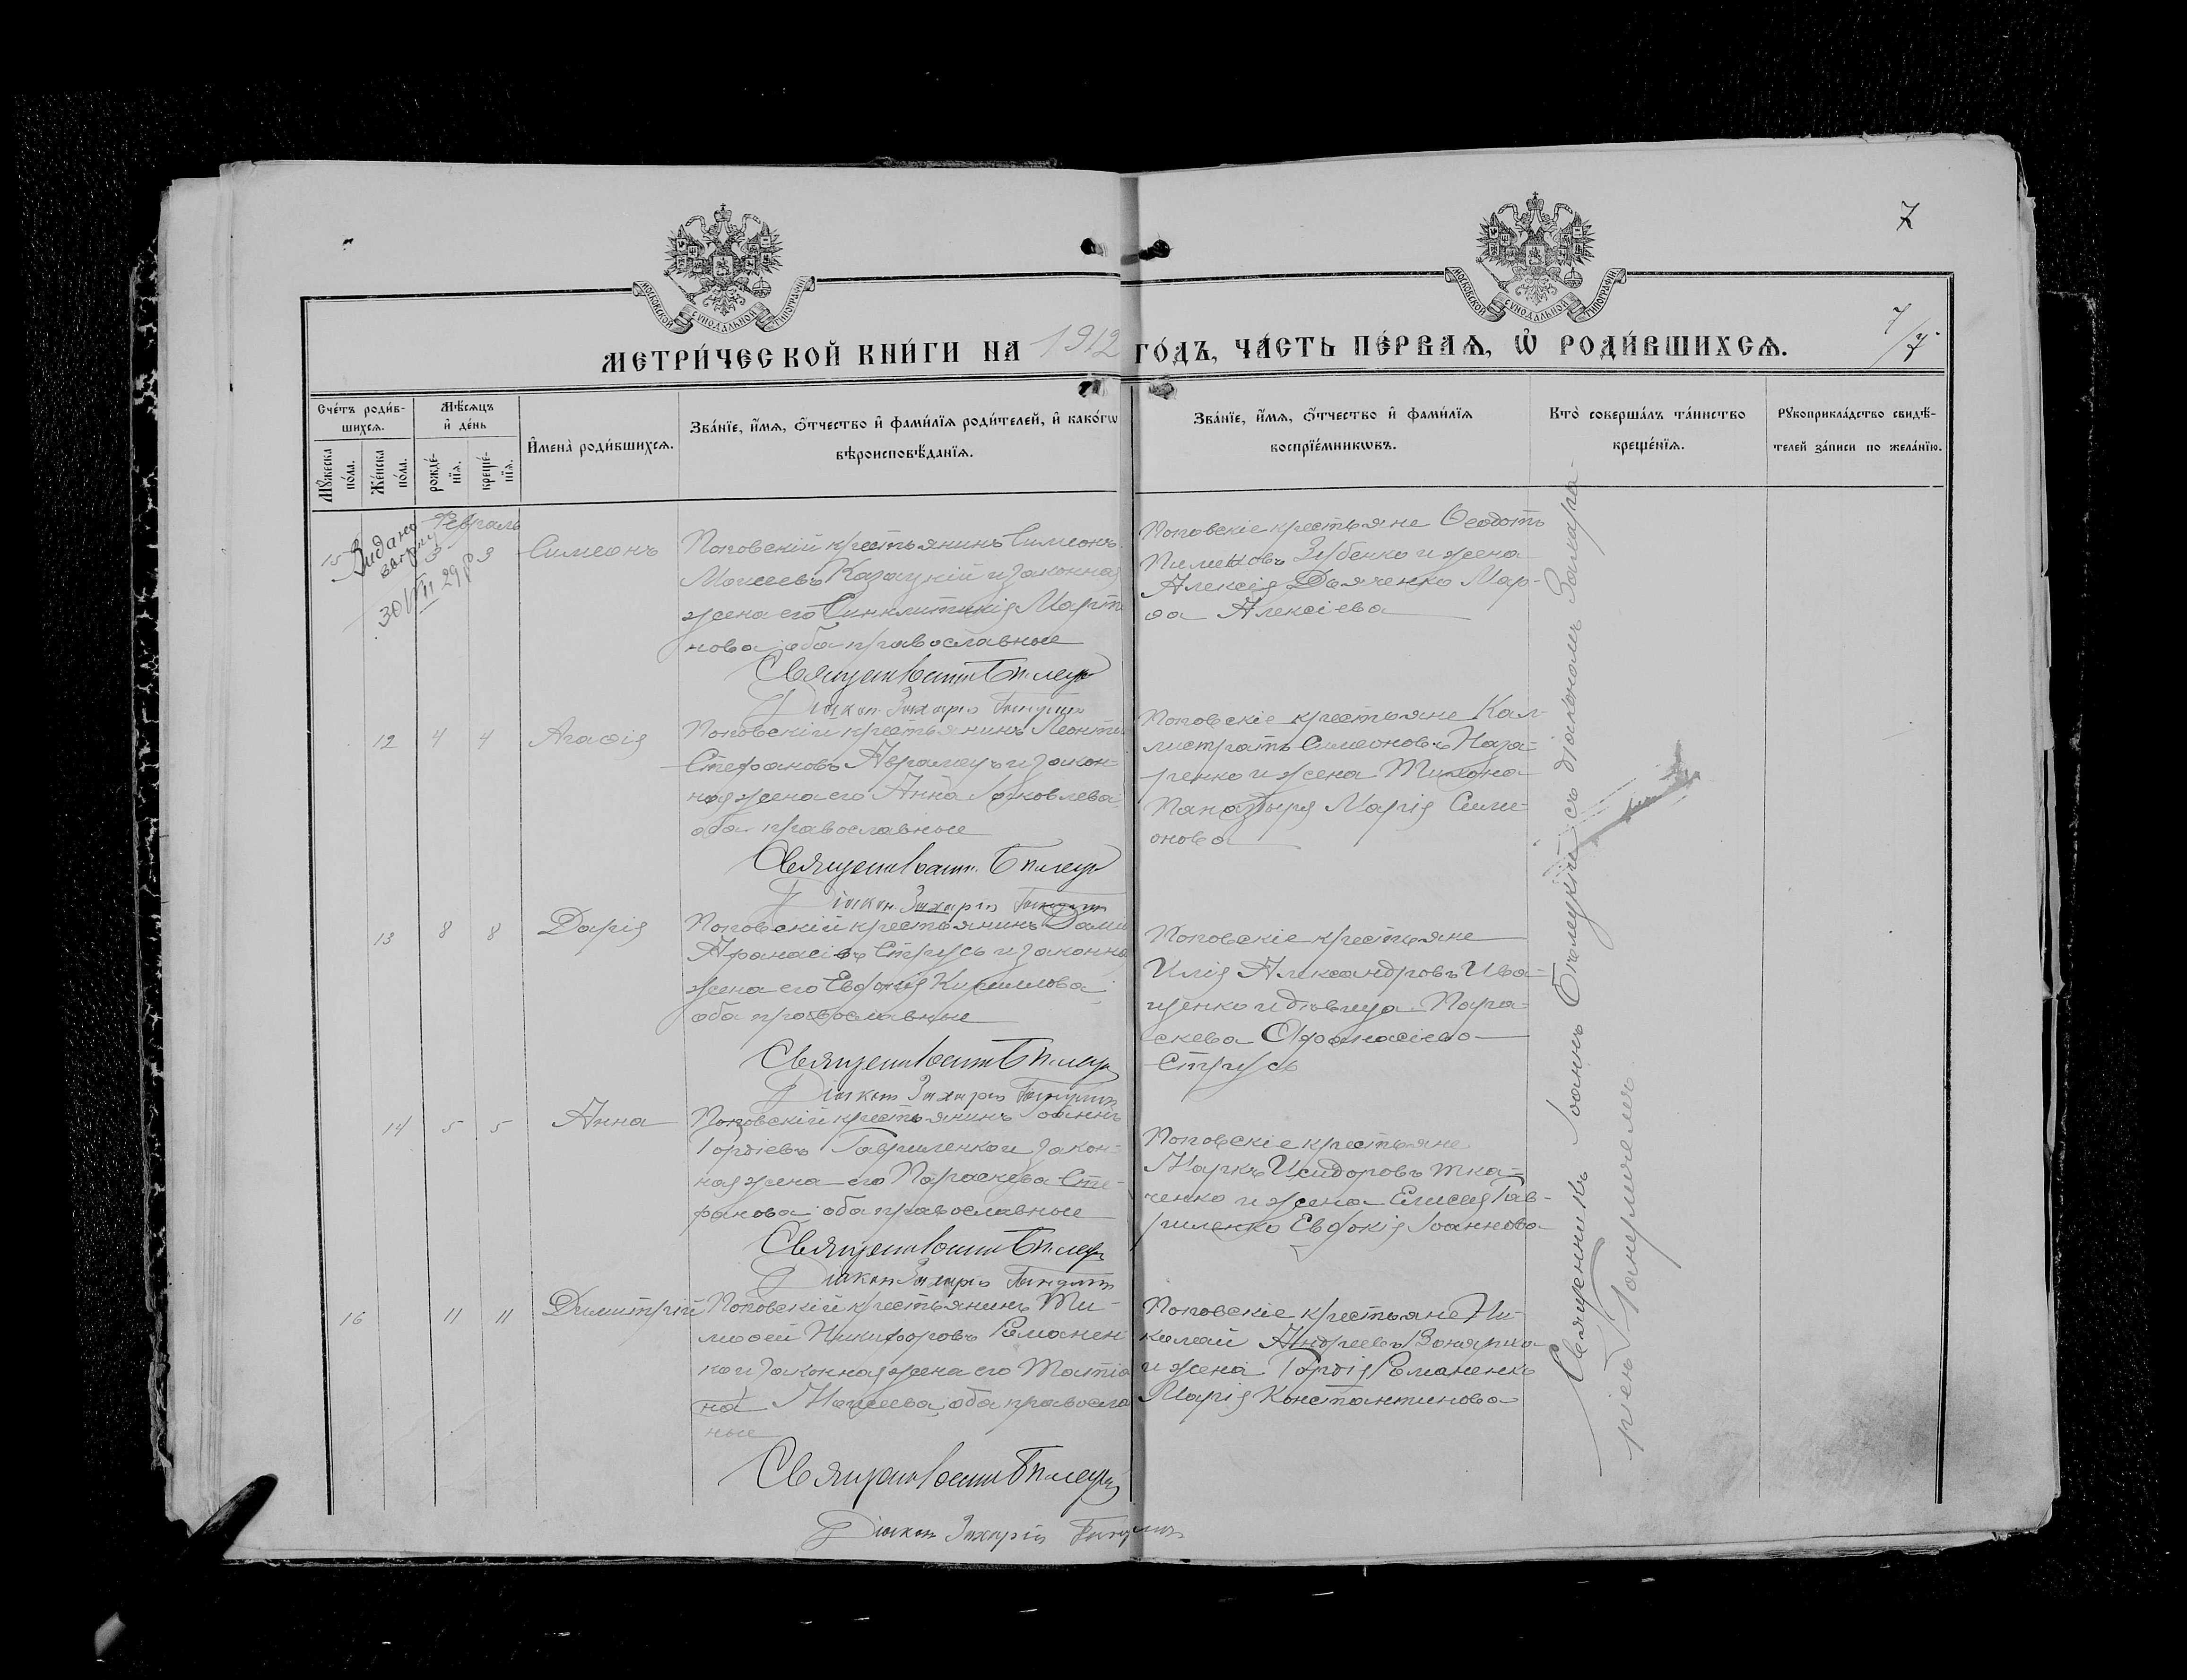 7
МОСКОВСКОЙ СѴНОДАЛЬНОЙ ТИПОГРАФІИ
МОСКОВСКОЙ СѴНОДАЛЬНОЙ ТИПОГРАФІИ
МЕТРИ́ЧЕСКОЙ КНИ́ГИ НА 1912 ГО́ДЪ, ЧА́СТЬ ПЕ́РВАѦ, Ѡ҆ РОДИ́ВШИХСѦ.
7/7
Сче́тъ роди́в-
шихсѧ.
Мѣ́сѧцъ
и҆ де́нь
И҆мена̀ роди́вшихсѧ.
Зва́нїе, и҆́мѧ, ѻ҆́тчество и҆ фами́лїѧ роди́телей, и҆ како́гѡ
вѣроисповѣ́данїѧ.
Зва́нїе, и҆́мѧ, ѻ҆́тчество и҆ фами́лїѧ
воспрїе́мникѡвъ.
Кто̀ соверша́лъ та́инство
креще́нїѧ.
Рꙋкоприкла́дство свидѣ́-
телей за́писи по жела́нїю.
Мꙋ́жеска
по́ла.
Же́нска
по́ла.
рожде́-
нїѧ.
креще́-
нїѧ.
Февраль
15 3 3 Симеонъ
Видано
30/VII 29 р
Поповскій крестьянинъ Симеонъ
Моисеевъ Казацкій и законная
жена его Синклитикія Марти
нова, оба православные
Священ Іоаннъ Билецк
Діакон Захарія
Поповскіе крестьяне Ѳеодотъ
Пименовъ Зубенко и жена
Алексія Дьяченко Мар-
ѳа Алексіева
12 4 4 Агаѳія
Поповскій крестьянинъ Леонтій
Стефановъ Аврамецъ и закон-
ная жена его Анна Яковлева,
оба православные
Священ Іоанн. Билецк
Діакон Захарія
Поповскіе крестьяне Кал-
листратъ Симеоновъ Наза-
ренко и жена Тихона
Марія Симе-
онова
13 8 8 Дарія
Поповскій крестьянинъ Даміа
Афанасіевъ Струсь и законна
жена его Евфимія Кириллова
оба православные
Священ Іоаннъ Билецк
Діакон Захарія
Поповскіе крестьяне
Илія Александровъ Ива-
щенко и дѣвица Пара-
скева Афанасіева
Струсь
14 5 5 Анна
Поповскій крестьянинъ Іоаннъ
Гордіевъ Гавриленко и закон-
ная жена его Параскева Сте-
фанова, оба православные
Священ Іоаннъ Билецк
Діакон Захарія
Поповскіе крестьяне
Маркъ Исидоровъ Тка-
ченко и жена Елисея Гав-
риленко Евфокія Іоаннова
16 11 11 Димитрій
Поповскій крестьянинъ Ти-
моѳей Никифоровъ Романен
ко и законная жена его Татіа
на Моисеева, оба правосла
ные
Священ Іоаннъ Билецк
Діакон Захарія
Поповскіе крестьяне Ни-
колай Андреевъ
и жена Гордія Романенко
Марія Константинова
Священникъ Іоаннъ Билецкій съ діакономъ Захарі-